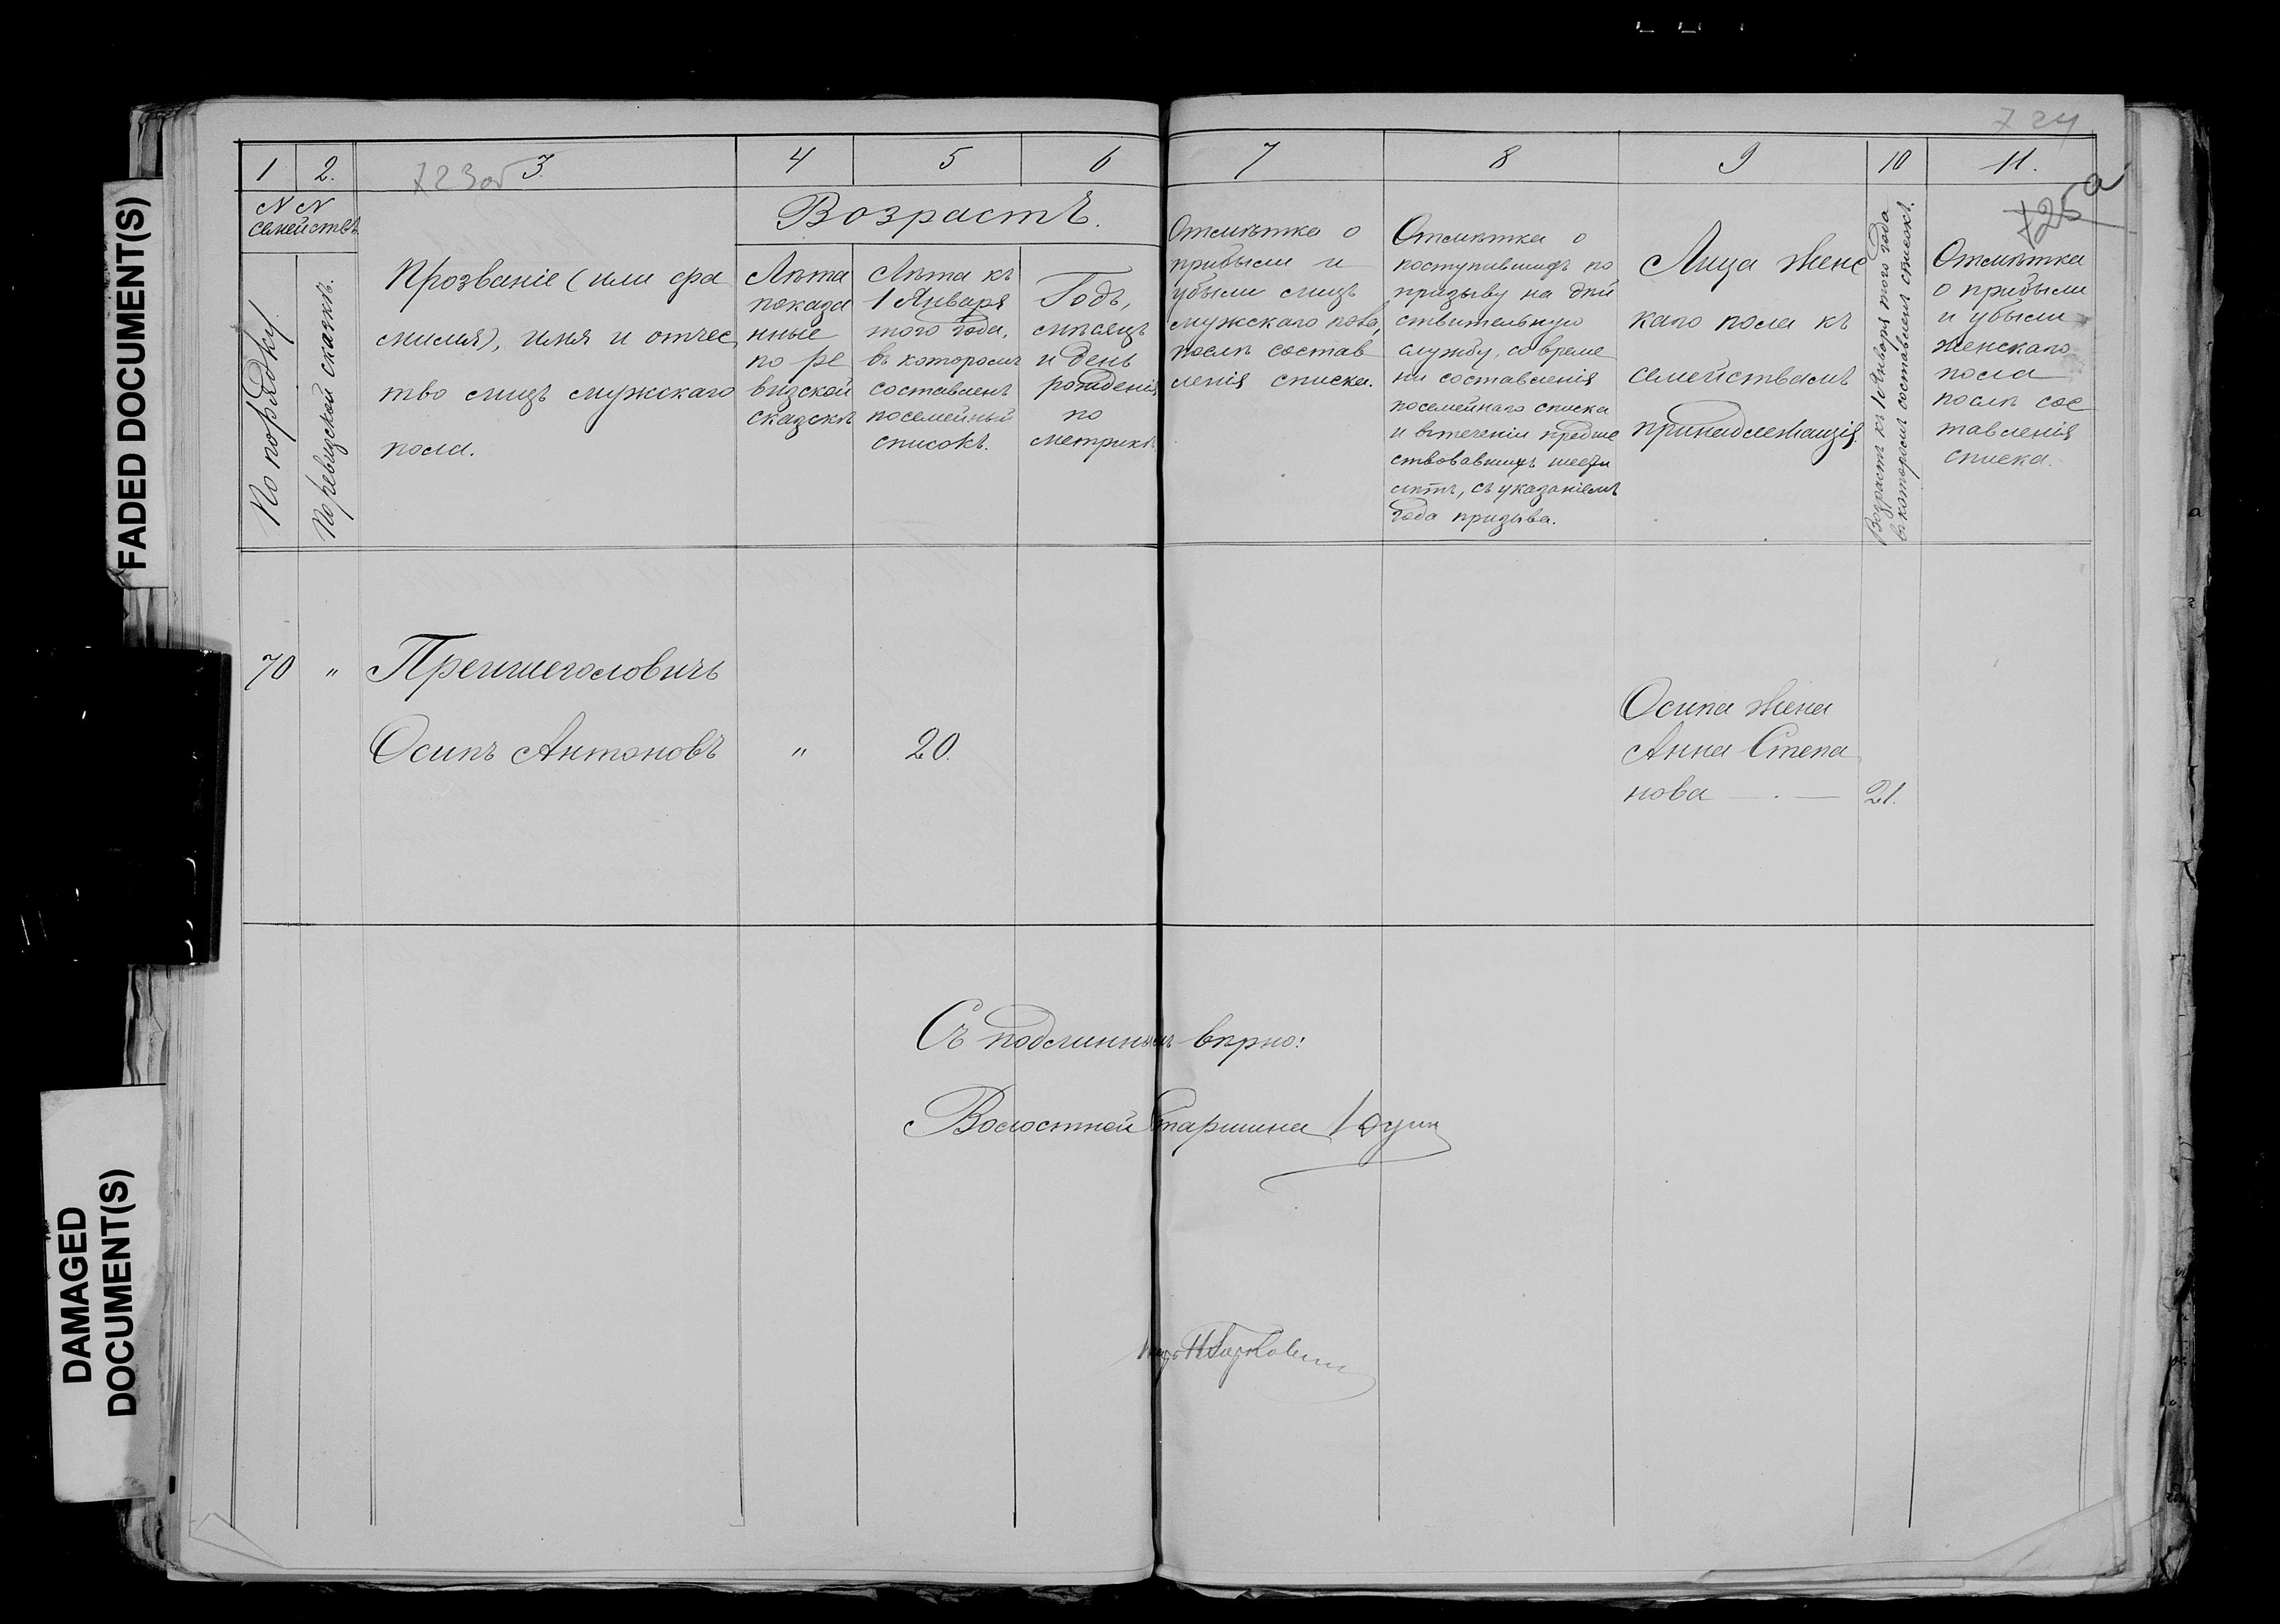 FADED DOCUMENT(S)
DAMAGED
DOCUMENT(S)
1
2.
3.
4
5
6
7
8
9
10
11.
723об
724
725а
N N
Семействъ
По порядку
По ревизской сказкѣ.
Прозваніе (или фа
милія), имя и отчес
тво лицъ мужскаго
пола.
Возрастъ.
Лѣта
показа
нные
по ре
визской
сказкѣ
Лѣта къ
1 Января
того года,
въ которомъ
составленъ
посемейный
списокъ.
Годъ,
мѣсяцъ
и день
рожденія
по
метрикѣ
Отмѣтка о
прибыли и
убыли лицъ
мужскаго пола,
послѣ состав
ленія списка.
Отмѣтка о
поступившихъ по
призыву на дѣй
ствительную
службу, со време
ни составленія
посемейнаго списка
и въ теченіи предше
ствовавшихъ шести
лѣтъ, съ указаніемъ
года призыва.
Лица женс
каго пола къ
семействамъ
принадлежащія
Возрастъ къ 1 Января того года
въ которомъ составленъ списокъ.
Отмѣтка
о прибыли
и убыли
женскаго
пола
послѣ сос
тавленія
списка.
70 " Пренигловичъ
Осипъ Антоновъ " 20.
Осипа жена
Анна Степа
нова — . — 21.
Съ подлиннымъ вѣрно:
Волостной Старшина